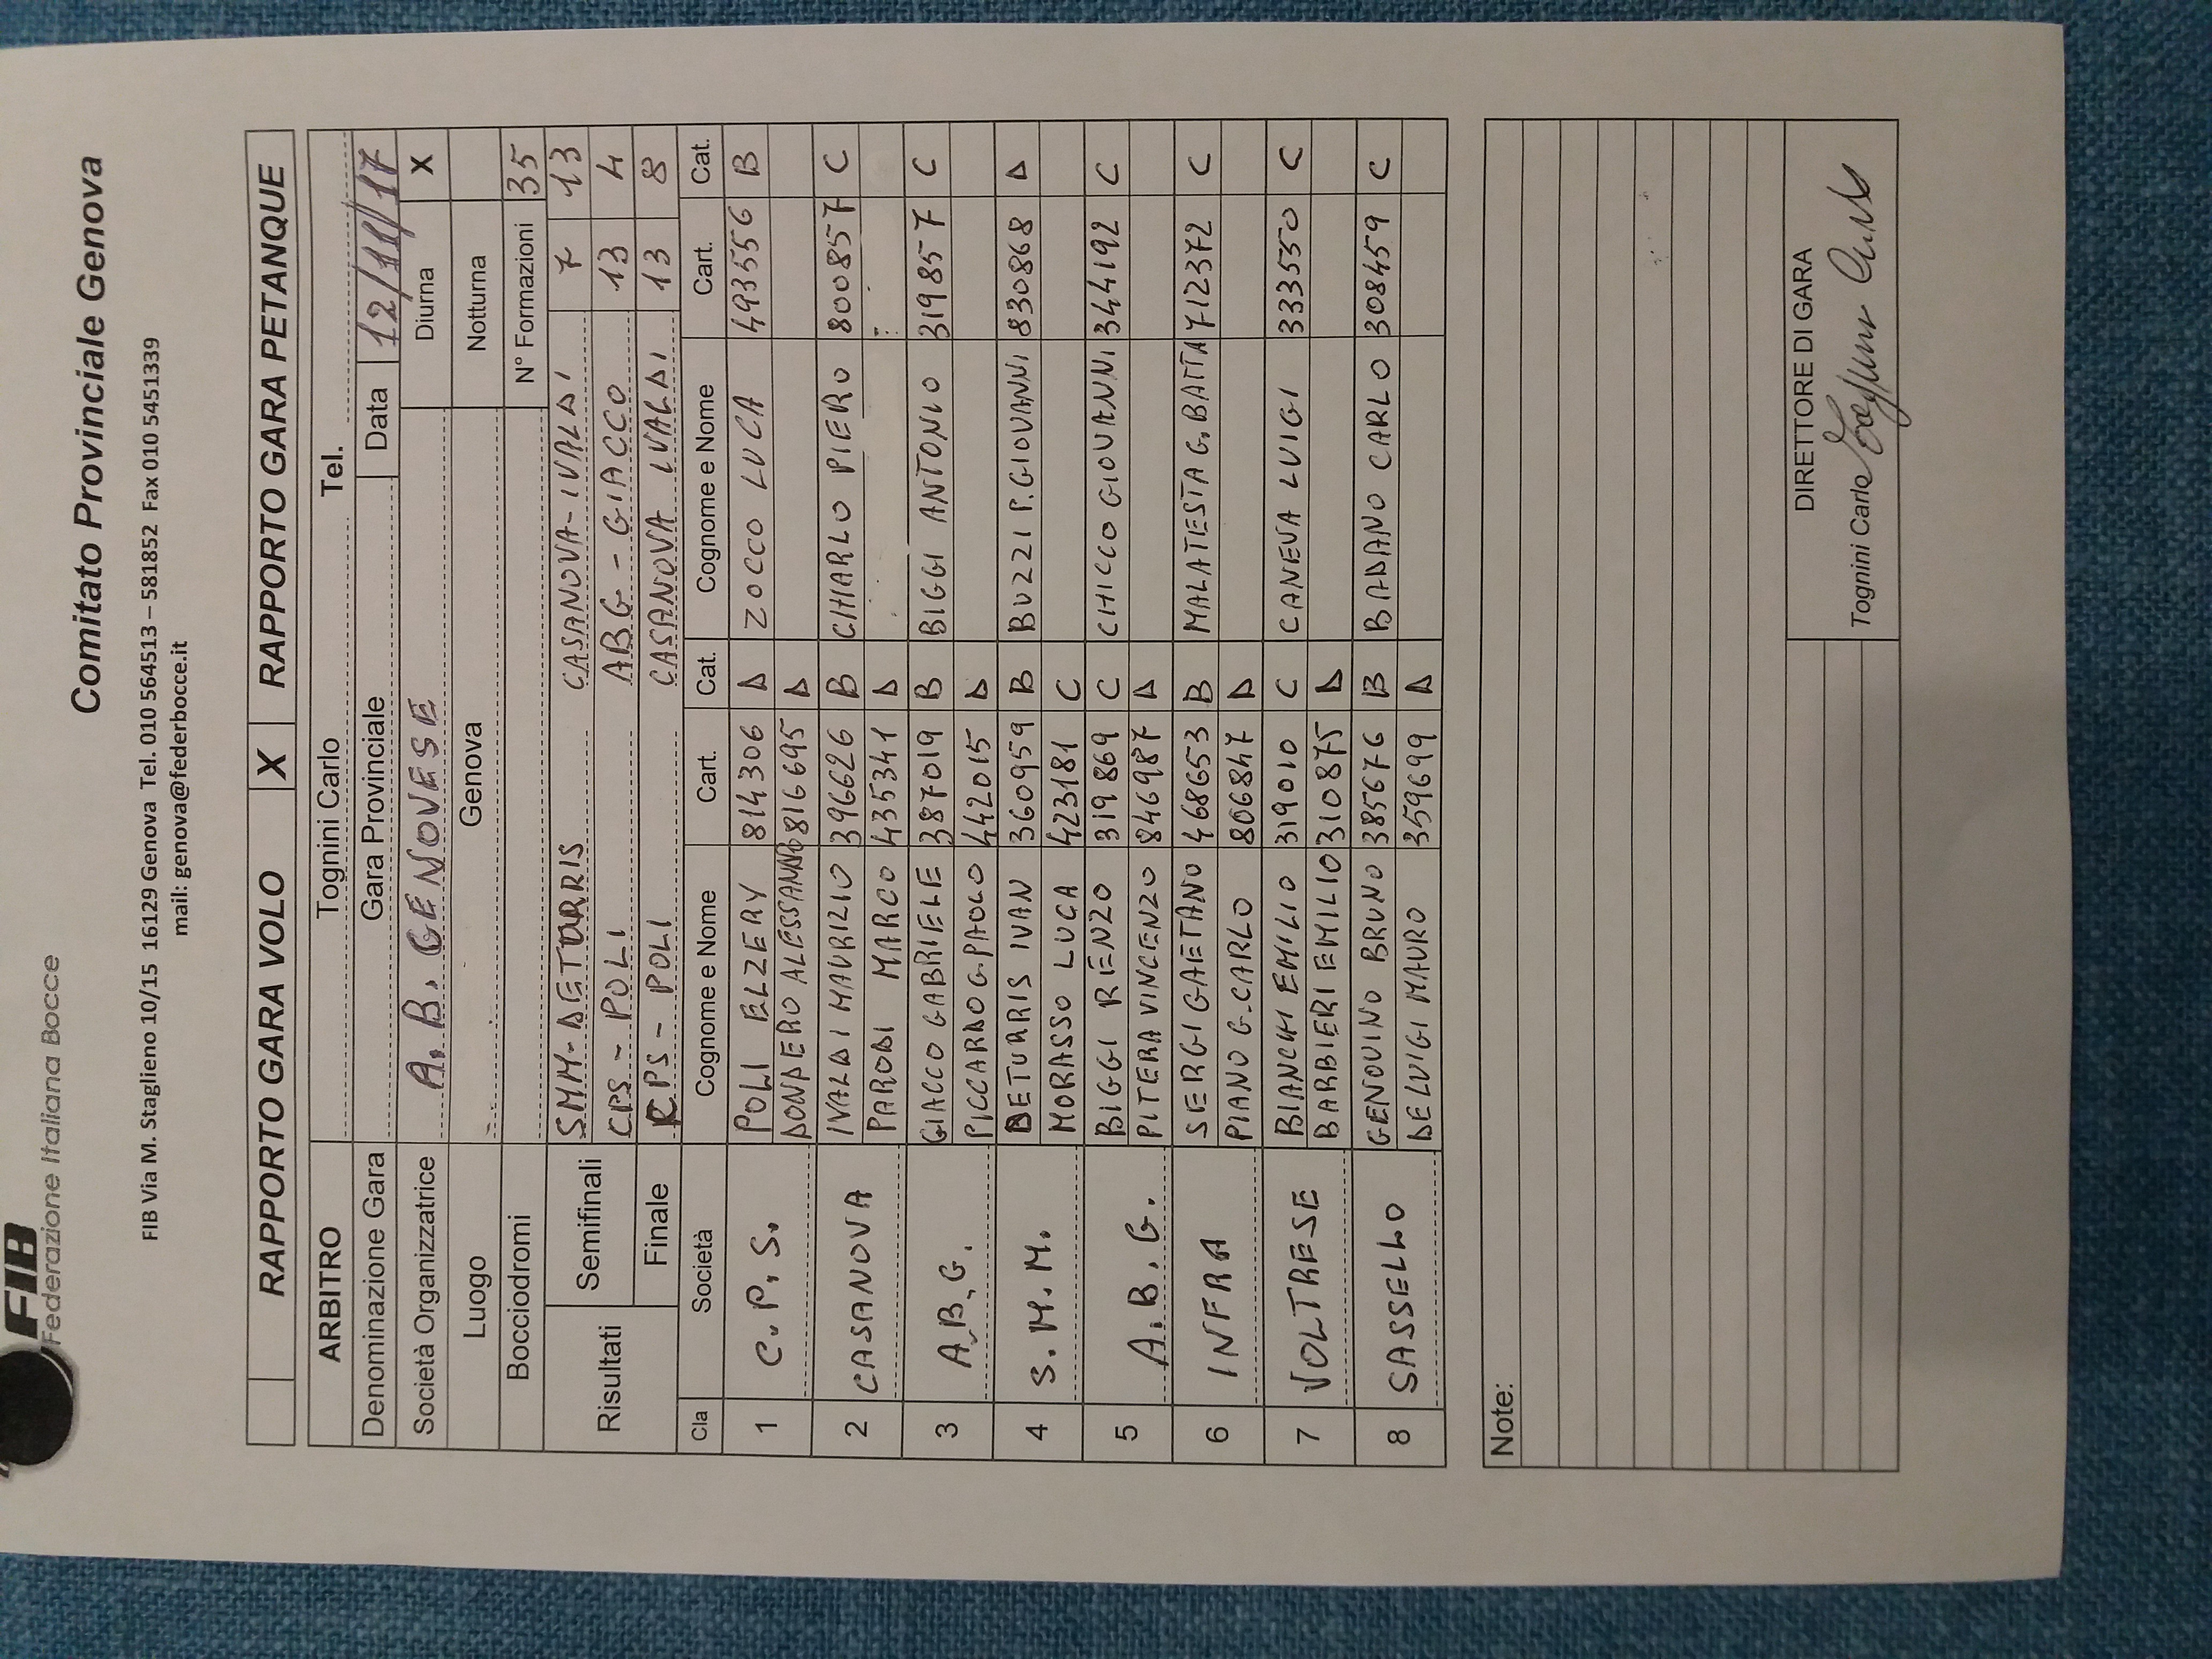 FIB
Federazione Italiana Bocce
Comitato Provinciale Genova
FIB Via M. Staglieno 10/15 16129 Genova Tel. 010 564513 – 581852 Fax 010 5451339
mail: genova@federbocce.it
RAPPORTO GARA VOLO X RAPPORTO GARA PETANQUE
ARBITRO Tognini Carlo Tel.
Denominazione Gara Gara Provinciale Data 12/11/17
Società Organizzatrice A.B. GENOVESE Diurna X
Luogo Genova Notturna
Bocciodromi N° Formazioni 35
Risultati Semifinali SMM-DETURRIS CASANOVA-IVALDI 7 13
CPS - POLI ABG - GIACCO 13 4
Finale CPS - POLI CASANOVA IVALDI 13 8
Cla Società Cognome e Nome Cart. Cat. Cognome e Nome Cart. Cat.
1 C.P.S. POLI ELZERY 814306 D ZOCCO LUCA 493556 B
DONDERO ALESSANDRO 816695 D
2 CASANOVA IVALDI MAURIZIO 396626 B CHIARLO PIERO 800857 C
PARODI MARCO 435341 D
3 A.B.G. GIACCO GABRIELE 387019 B BIGGI ANTONIO 319857 C
PICCARDO G.PAOLO 442015 D
4 S.M.M. DETURRIS IVAN 360959 B BUZZI P.GIOVANNI 830868 D
MORASSO LUCA 423181 C
5 A.B.G. BIGGI RENZO 319869 C CHICCO GIOVANNI 344192 C
PITERA VINCENZO 846987 D
6 INFRA SERGI GAETANO 468653 B MALATESTA G.BATTA 712372 C
PIANO G.CARLO 806847 D
7 VOLTRESE BIANCHI EMILIO 319010 C CANEVA LUIGI 333550 C
BARBIERI EMILIO 310875 D
8 SASSELLO GENOVINO BRUNO 385676 B BADANO CARLO 308459 C
DELUIGI MAURO 359699 D
Note:
DIRETTORE DI GARA
Tognini Carlo